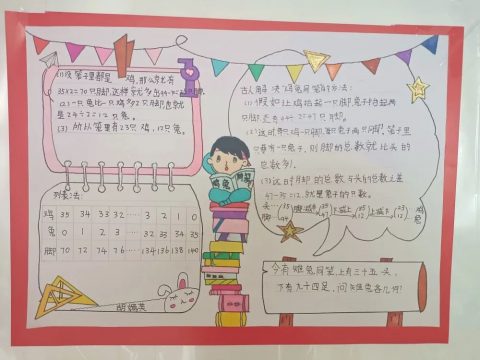 (1)假设笼子里都是鸡,那么就有
35×2=70只脚,这样就多出94-70=24只脚。
(2)一只兔比一只鸡多2只脚,也就
是24÷2=12只兔。
(3)所以笼里有23只鸡,12只兔。
列表法:
鸡 35 34 33 32 …… 3 2 1 0
兔 0 1 2 3 …… 32 33 34 35
脚 70 72 74 76 …… 134 136 138 140
鸡兔
古人解决“鸡兔同笼”的方法:
(1)假如让鸡抬起一只脚,兔子抬起两
只脚,还有94÷2=47只脚。
(2)这时每只鸡一只脚,每只兔子两只脚。笼子里
只要有一只兔子,则脚的总数就比头的
总数多1。
(3)这时脚的总数与头的总数之差
47-35=12,就是兔子的只数。
头…
脚…
今有雉兔同笼,上有三十五头,
下有九十四足,问雉兔各几何?